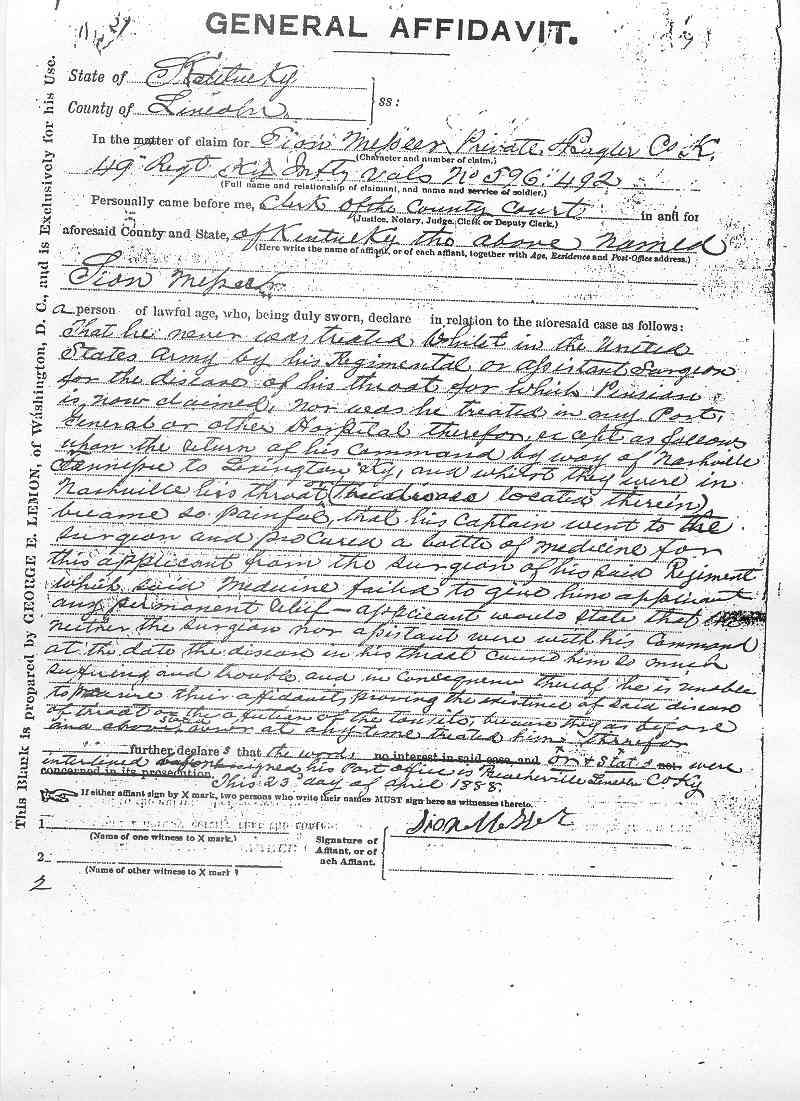 GENERAL AFFIDAVIT.
State of Kentucky
County of Lincoln
ss:
In the matter of claim for Sion Messer Private Bugler Co K.
(Character and number of claim.)
49" Regt Ky Infty Vols No 596.492
(Full name and relationship of claimant, and name and service of soldier.)
Personally came before me, Clerk of the County Court in and for
(Justice, Notary, Judge, Clerk or Deputy Clerk.)
aforesaid County and State, of Kentucky the above named
(Here write the name of affiant, or of each affiant, together with Age, Residence and Post-Office address.)
Sion Messer
a person of lawful age, who, being duly sworn, declare in relation to the aforesaid case as follows:
That he never was treated whilst in the United
States Army by his Regimental or assistant Surgeon
for the disease of his throat for which Pension
is now claimed, nor was he treated in any Post,
General or other Hospital therefor, except as follows
upon the return of his command by way of Nashville
Tennessee to Lexington Ky, and whilst they were in
Nashville his throat (the disease located therein)
became so painful, that his Captain went to the
surgeon and procured a bottle of medicine for
this applicant from the surgeon of his said Regiment
which said medicine failed to give him applicant
any permanent relief – applicant would state that
neither the surgeon nor assistant were with his command
at the date the disease in his throat caused him so much
suffering and trouble and in consequence thereof he is unable
to procure their affidavits, proving the existence of said disease
of throat or the affection of the tonsils, because they as before
and above stated, never at any time treated him therefor
further declare s that the words no interest in said case, and or & Stat s not were
interlined before signed his Post office is Lincoln Co Ky
concerned in its prosecution. This 23" day of April 1888.
If either affiant sign by X mark, two persons who write their names MUST sign here as witnesses thereto.
1
(Name of one witness to X mark.)
2
(Name of other witness to X mark
Signature of
Affiant, or of
each Affiant.
Sion Messer
2
This Blank is prepared by GEORGE E. LEMON, of Washington, D. C., and is Exclusively for his Use.